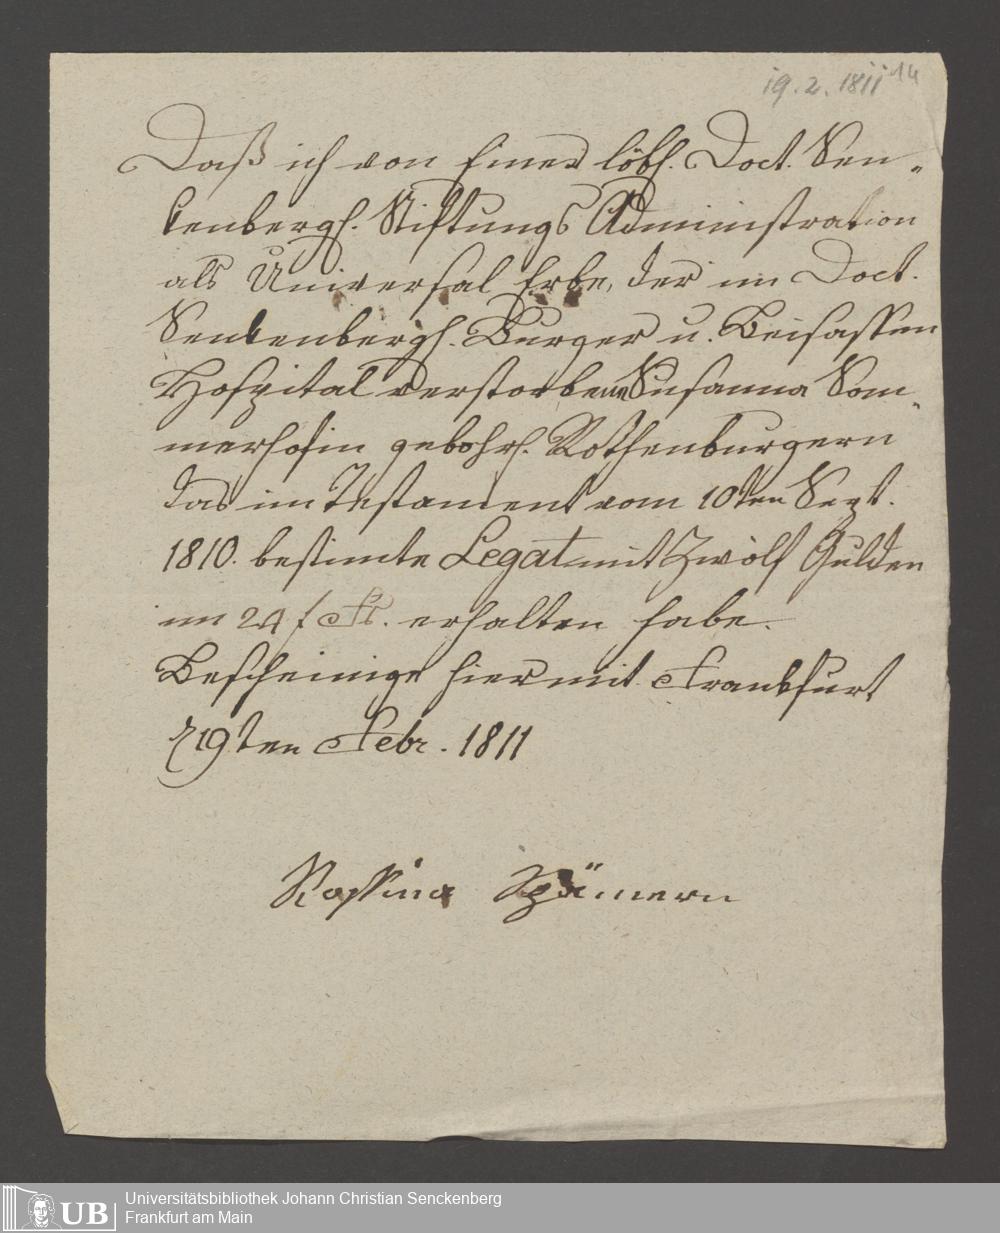 19. 2. 1811 14
Daß ich von Einer löbl. Doct. Sen-
kenbergh. Stiftungs Administration
als Universal Erbe, der im Doct.
Senkenbergh. Burger u. Beisassen
Hospital verstorbenen Susanna Som-
merhofin gebohrh. Rothenburgern
das im Testament vom 10ten Sept.
1810. bestimte Legat mit Zwölf Gulden
im 24 f erhalten habe.
Bescheinige hiermit Frankfurt
19ten Febr. 1811
Rossina Spämern
Universitätsbibliothek Johann Christian Senckenberg
Frankfurt am Main
UB